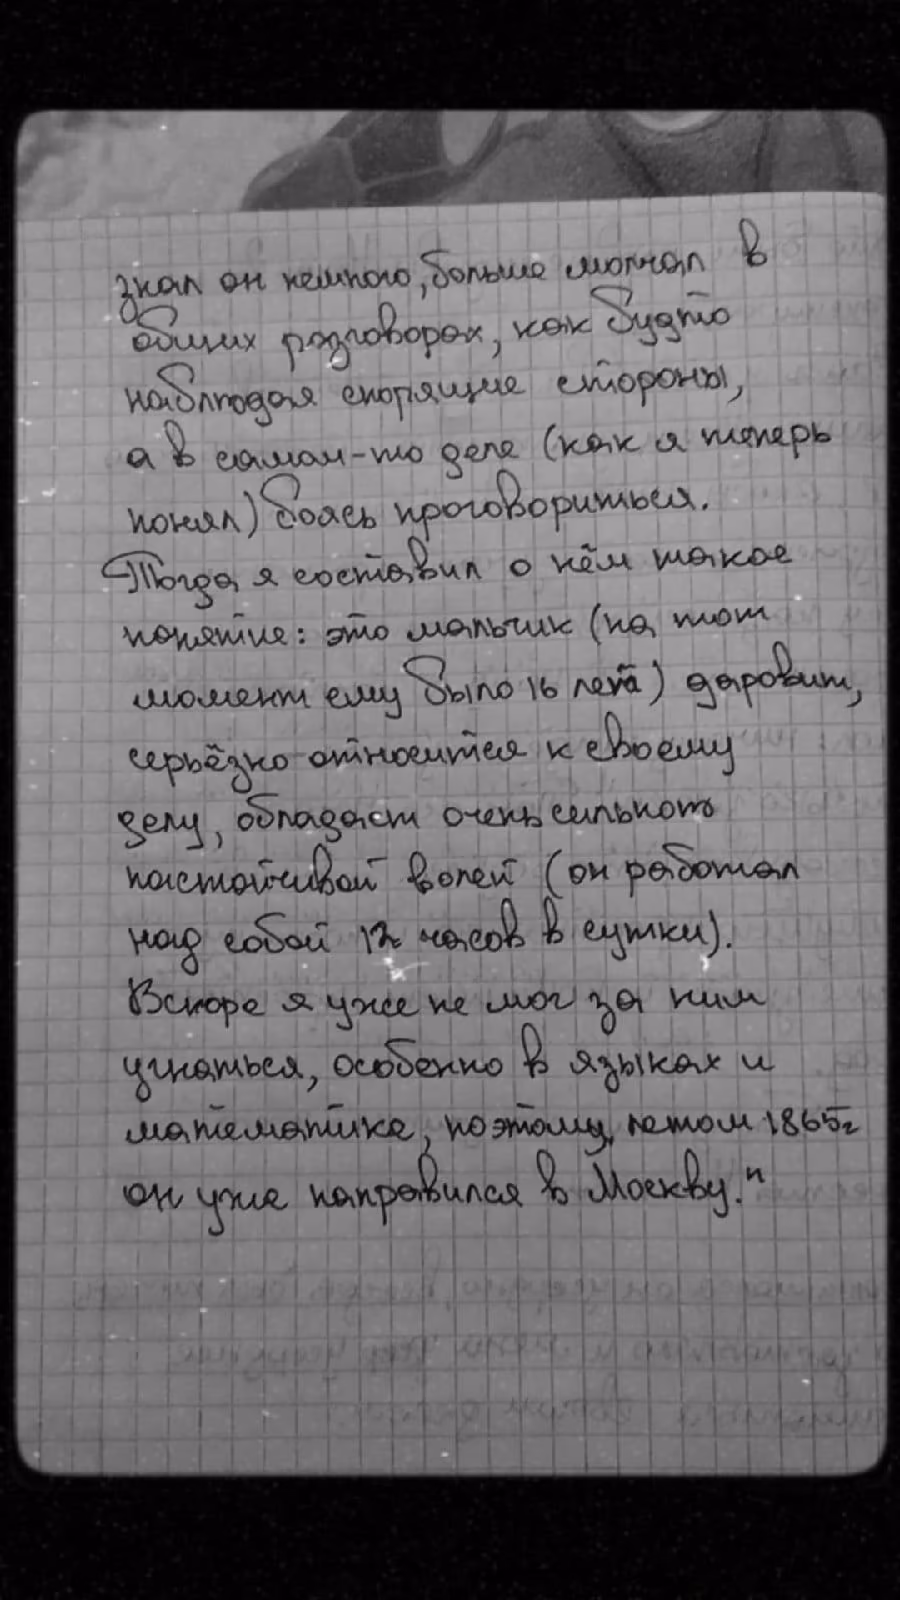 знал он немного, больше молчал в
общих разговорах, как будто
наблюдая спорящие стороны,
а в самом-то деле (как я теперь
понял) боясь проговориться.
Тогда я составил о нём такое
понятие: это мальчик (на тот
момент ему было 16 лет) даровит,
серьёзно относится к своему
делу, обладает очень сильной
настойчивой волей (он работал
над собой 12 часов в сутки).
Вскоре я уже не мог за ним
угнаться, особенно в языках и
математике, поэтому, летом 1865г
он уже направился в Москву."